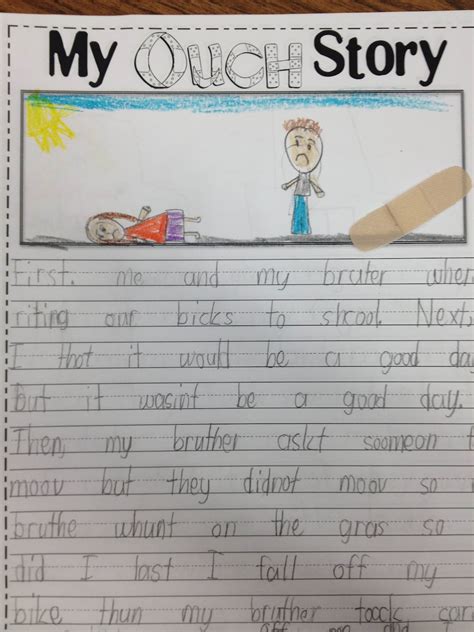 My OUCH Story
First. me and my bruter wher
riting our bicks to shcool. Next,
I thot it would be a good day
But it wasint be a good day.
Then, my bruther askt soomeon
moov but they didnot moov so
bruthe whunt on the gras so
did I last I fall off my
bike thun my bruther toock
off